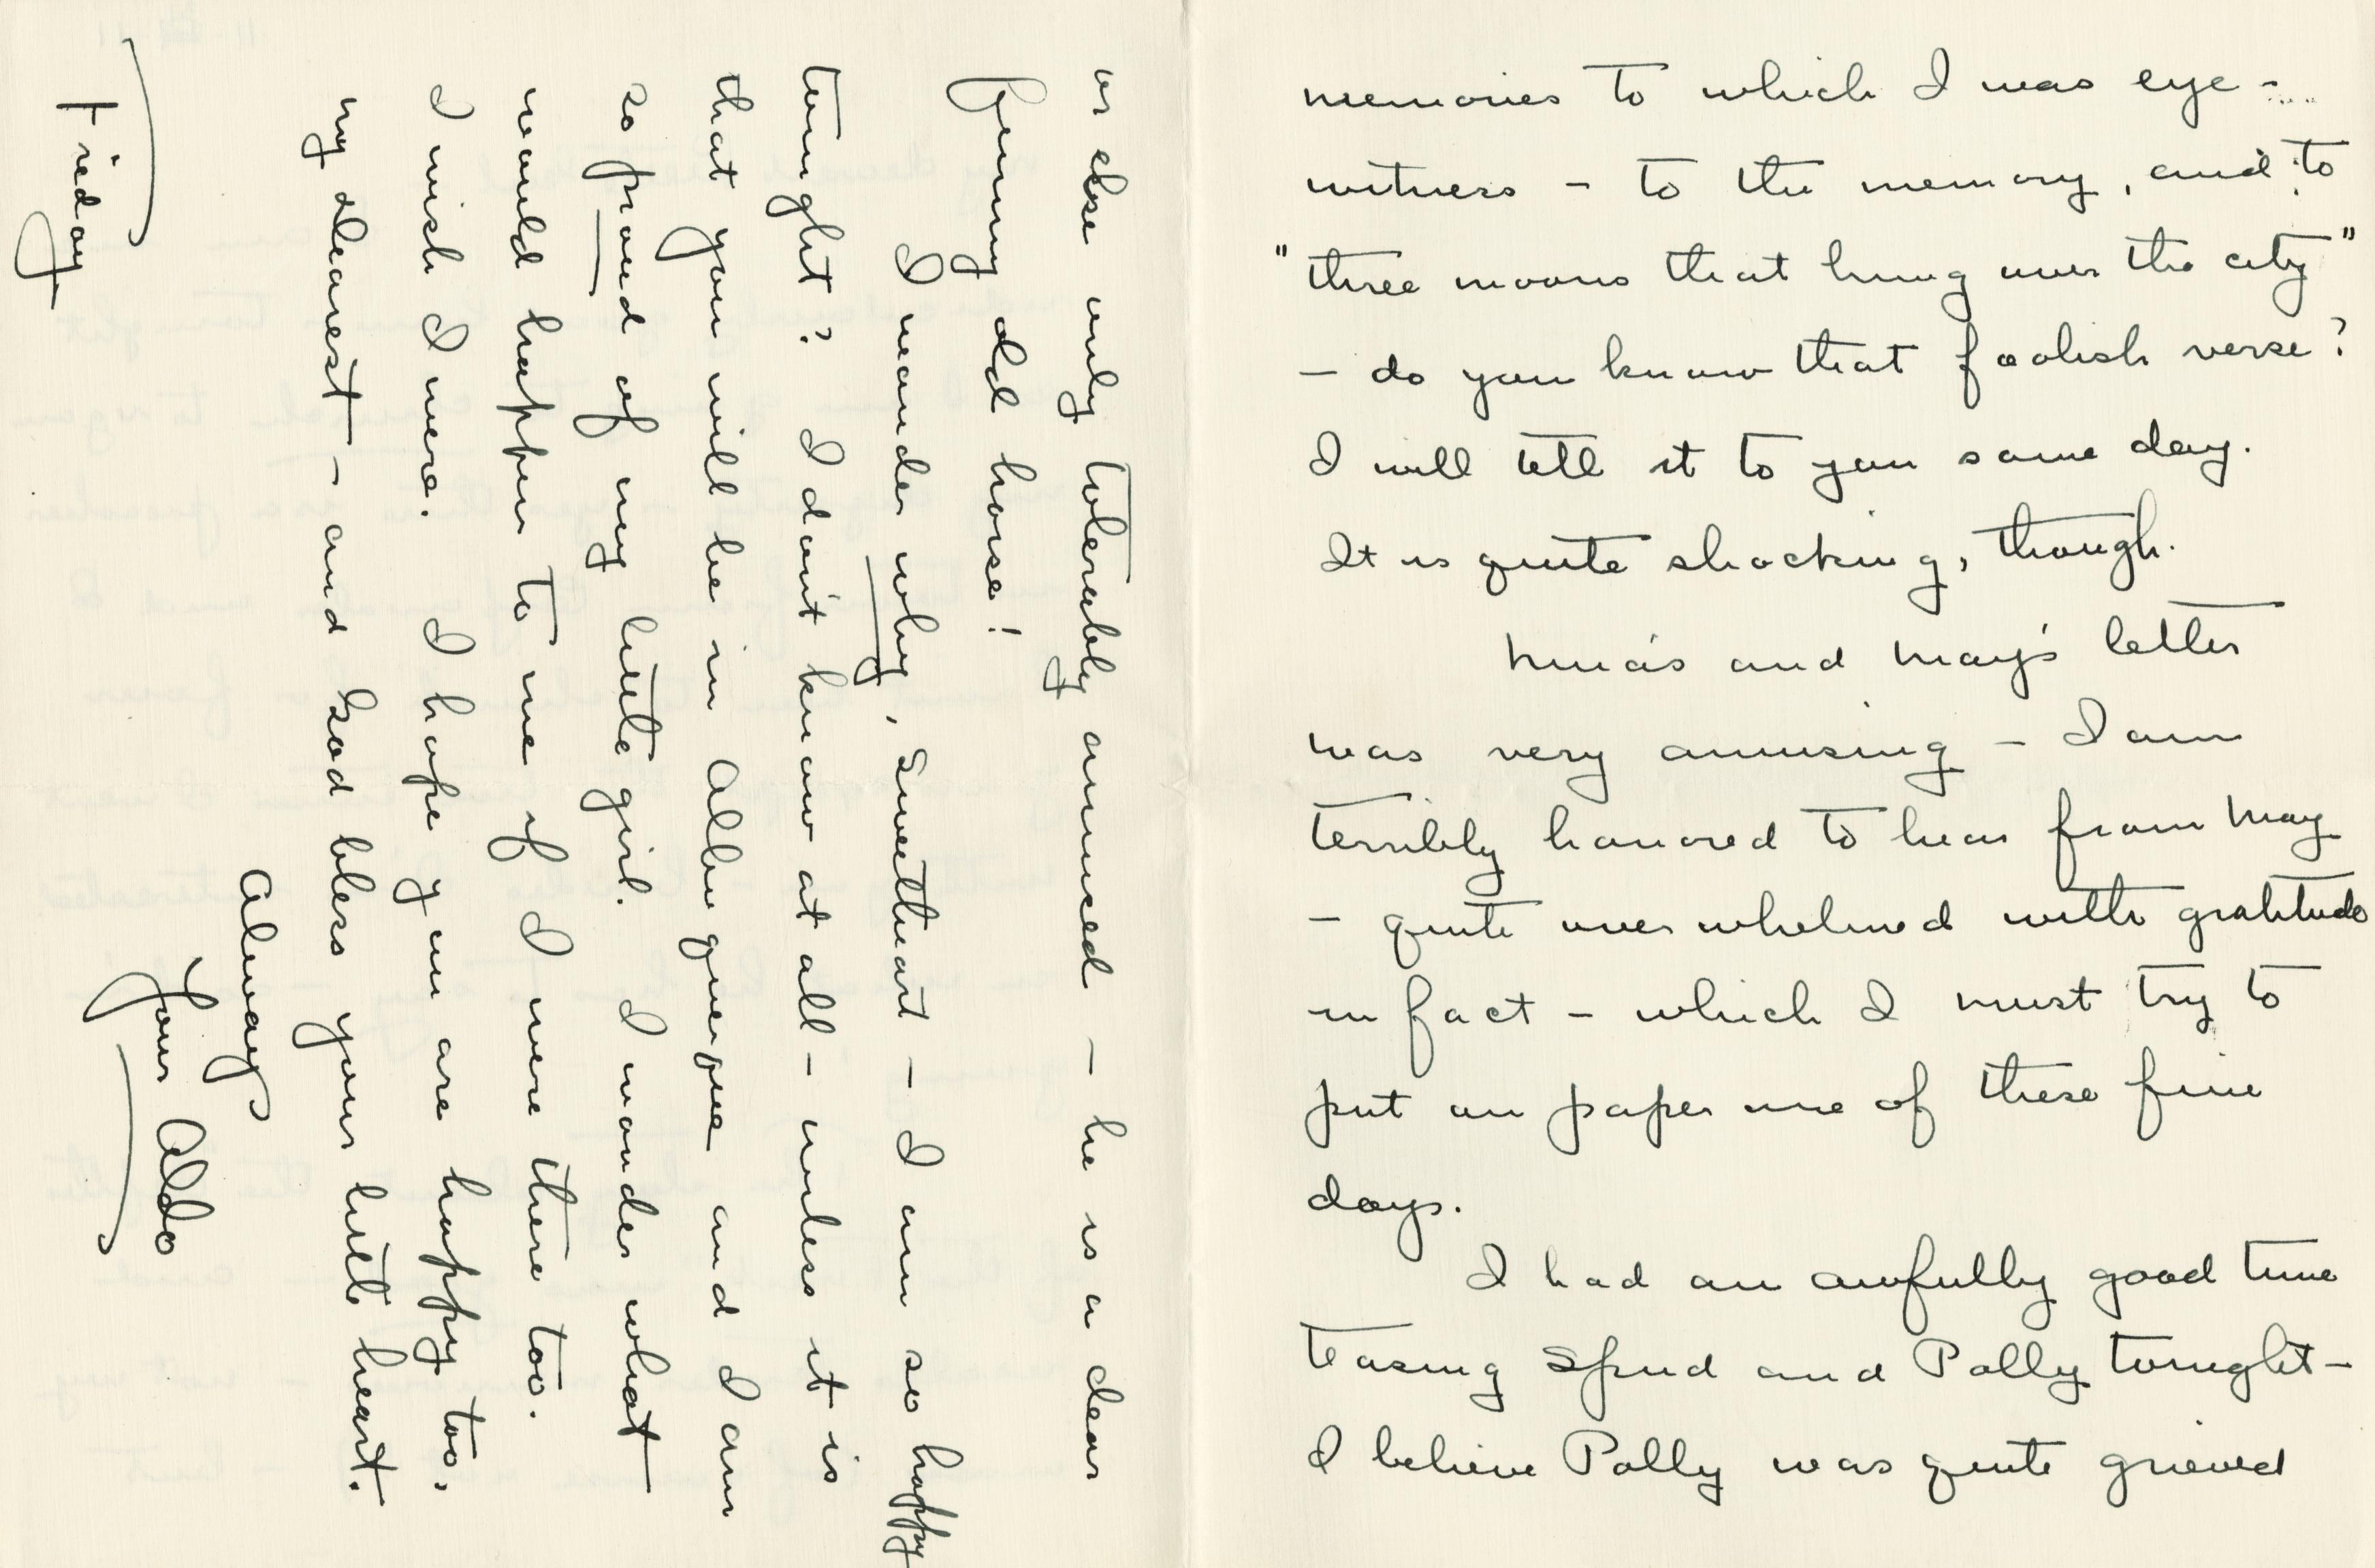 memories to which I was eye-
witness - to the memory, and to
"three moons that hung over the city"
- do you know that foolish verse?
I will tell it to you some day.
It is quite shocking, though.
Nina's and May's letter
was very amusing - I am
terribly honored to hear from May
- quite overwhelmed with gratitude
in fact - which I must try to
put on paper one of these fine
days.
I had an awfully good time
teasing Spud and Polly tonight-
I believe Polly was quite grieved
or else only tolerably amused - he is a dear
funny old horse!
I wonder why, Sweetheart - I am so happy
tonight? I don't know at all - unless it is
that you will be in Albuquerque and I am
so proud of my little girl. I wonder what
would happen to me if I were there too.
I wish I were. I hope you are happy too,
my dearest - and God bless your little heart.
Always
Your Aldo
Friday